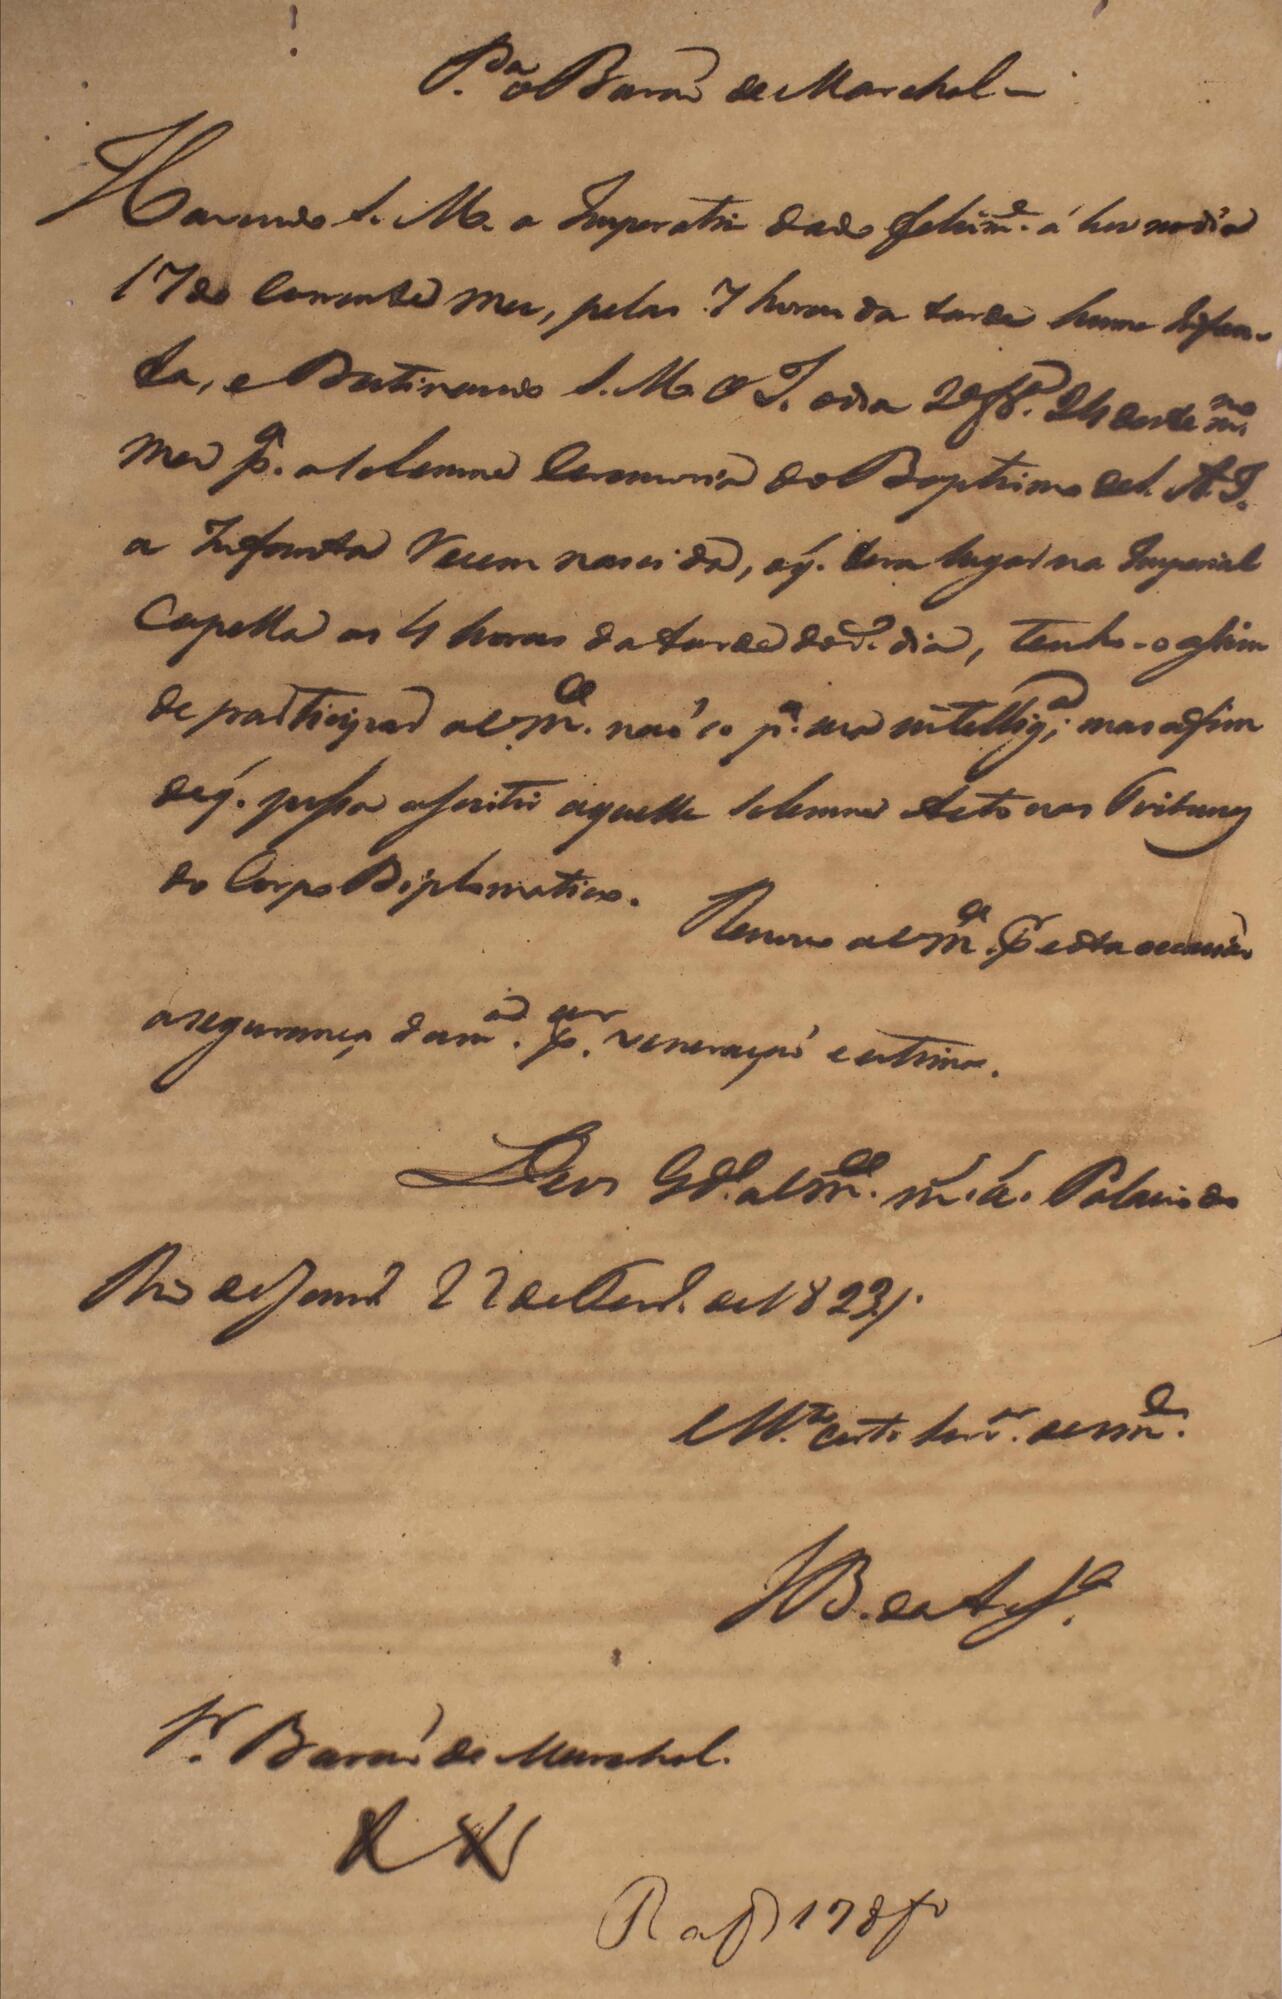 P.ª o Barão de Marchal —
Havendo S. M. a Imperatriz dado felizm.e á luz no dia
17 do Corrente mez, pelas 7 horas da tarde huma Infan-
ta, e Destinando S. M. O I. o dia 2ª fr.ª 24 deste m.mo
mez p.ª a Solemne Ceremonia do Baptismo de S. A. I.
a Infanta Recem nascida, o q. tera lugar na Imperial
Capella as 4 horas da tarde do d.º dia, tenho-o assim
de participar a V. M.ce não só p.ª sua intellig.ª, mas afim
de q. possa assistir aquelle Solemne Acto nas Tribunas
do Corpo Diplomatico. Renovo a V. M.ce p.r esta occasião
a segurança da m.ª p.ar veneração e estima.
Deos G.de a V. M.ce m.s a.s Palacio do
Rio de Janr.º 22 de Fevr.º de 1823 /.
M.to certo Serv.or de V. M.ce
J B. de And.ª
Sr. Barão de Marchal.